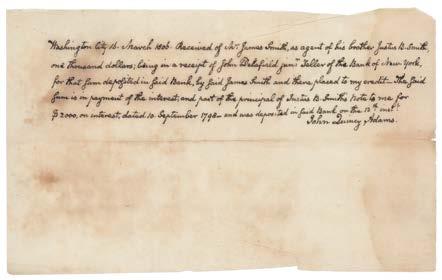 Washington City 18. March 1806. Received of Mr. James Smith, as agent of his brother Justus B. Smith,
one thousand dollars; being in a receipt of John Delafield junr. Teller of the Bank of New York,
for that sum deposited in said Bank, by said James Smith and there placed to my credit — The said
sum is in payment of the interest, and part of the principal of Justus B. Smith's Note to me for
$2000, on interest, dated 10. September 1798 — and was deposited in said Bank on the 13th inst.
John Quincy Adams.